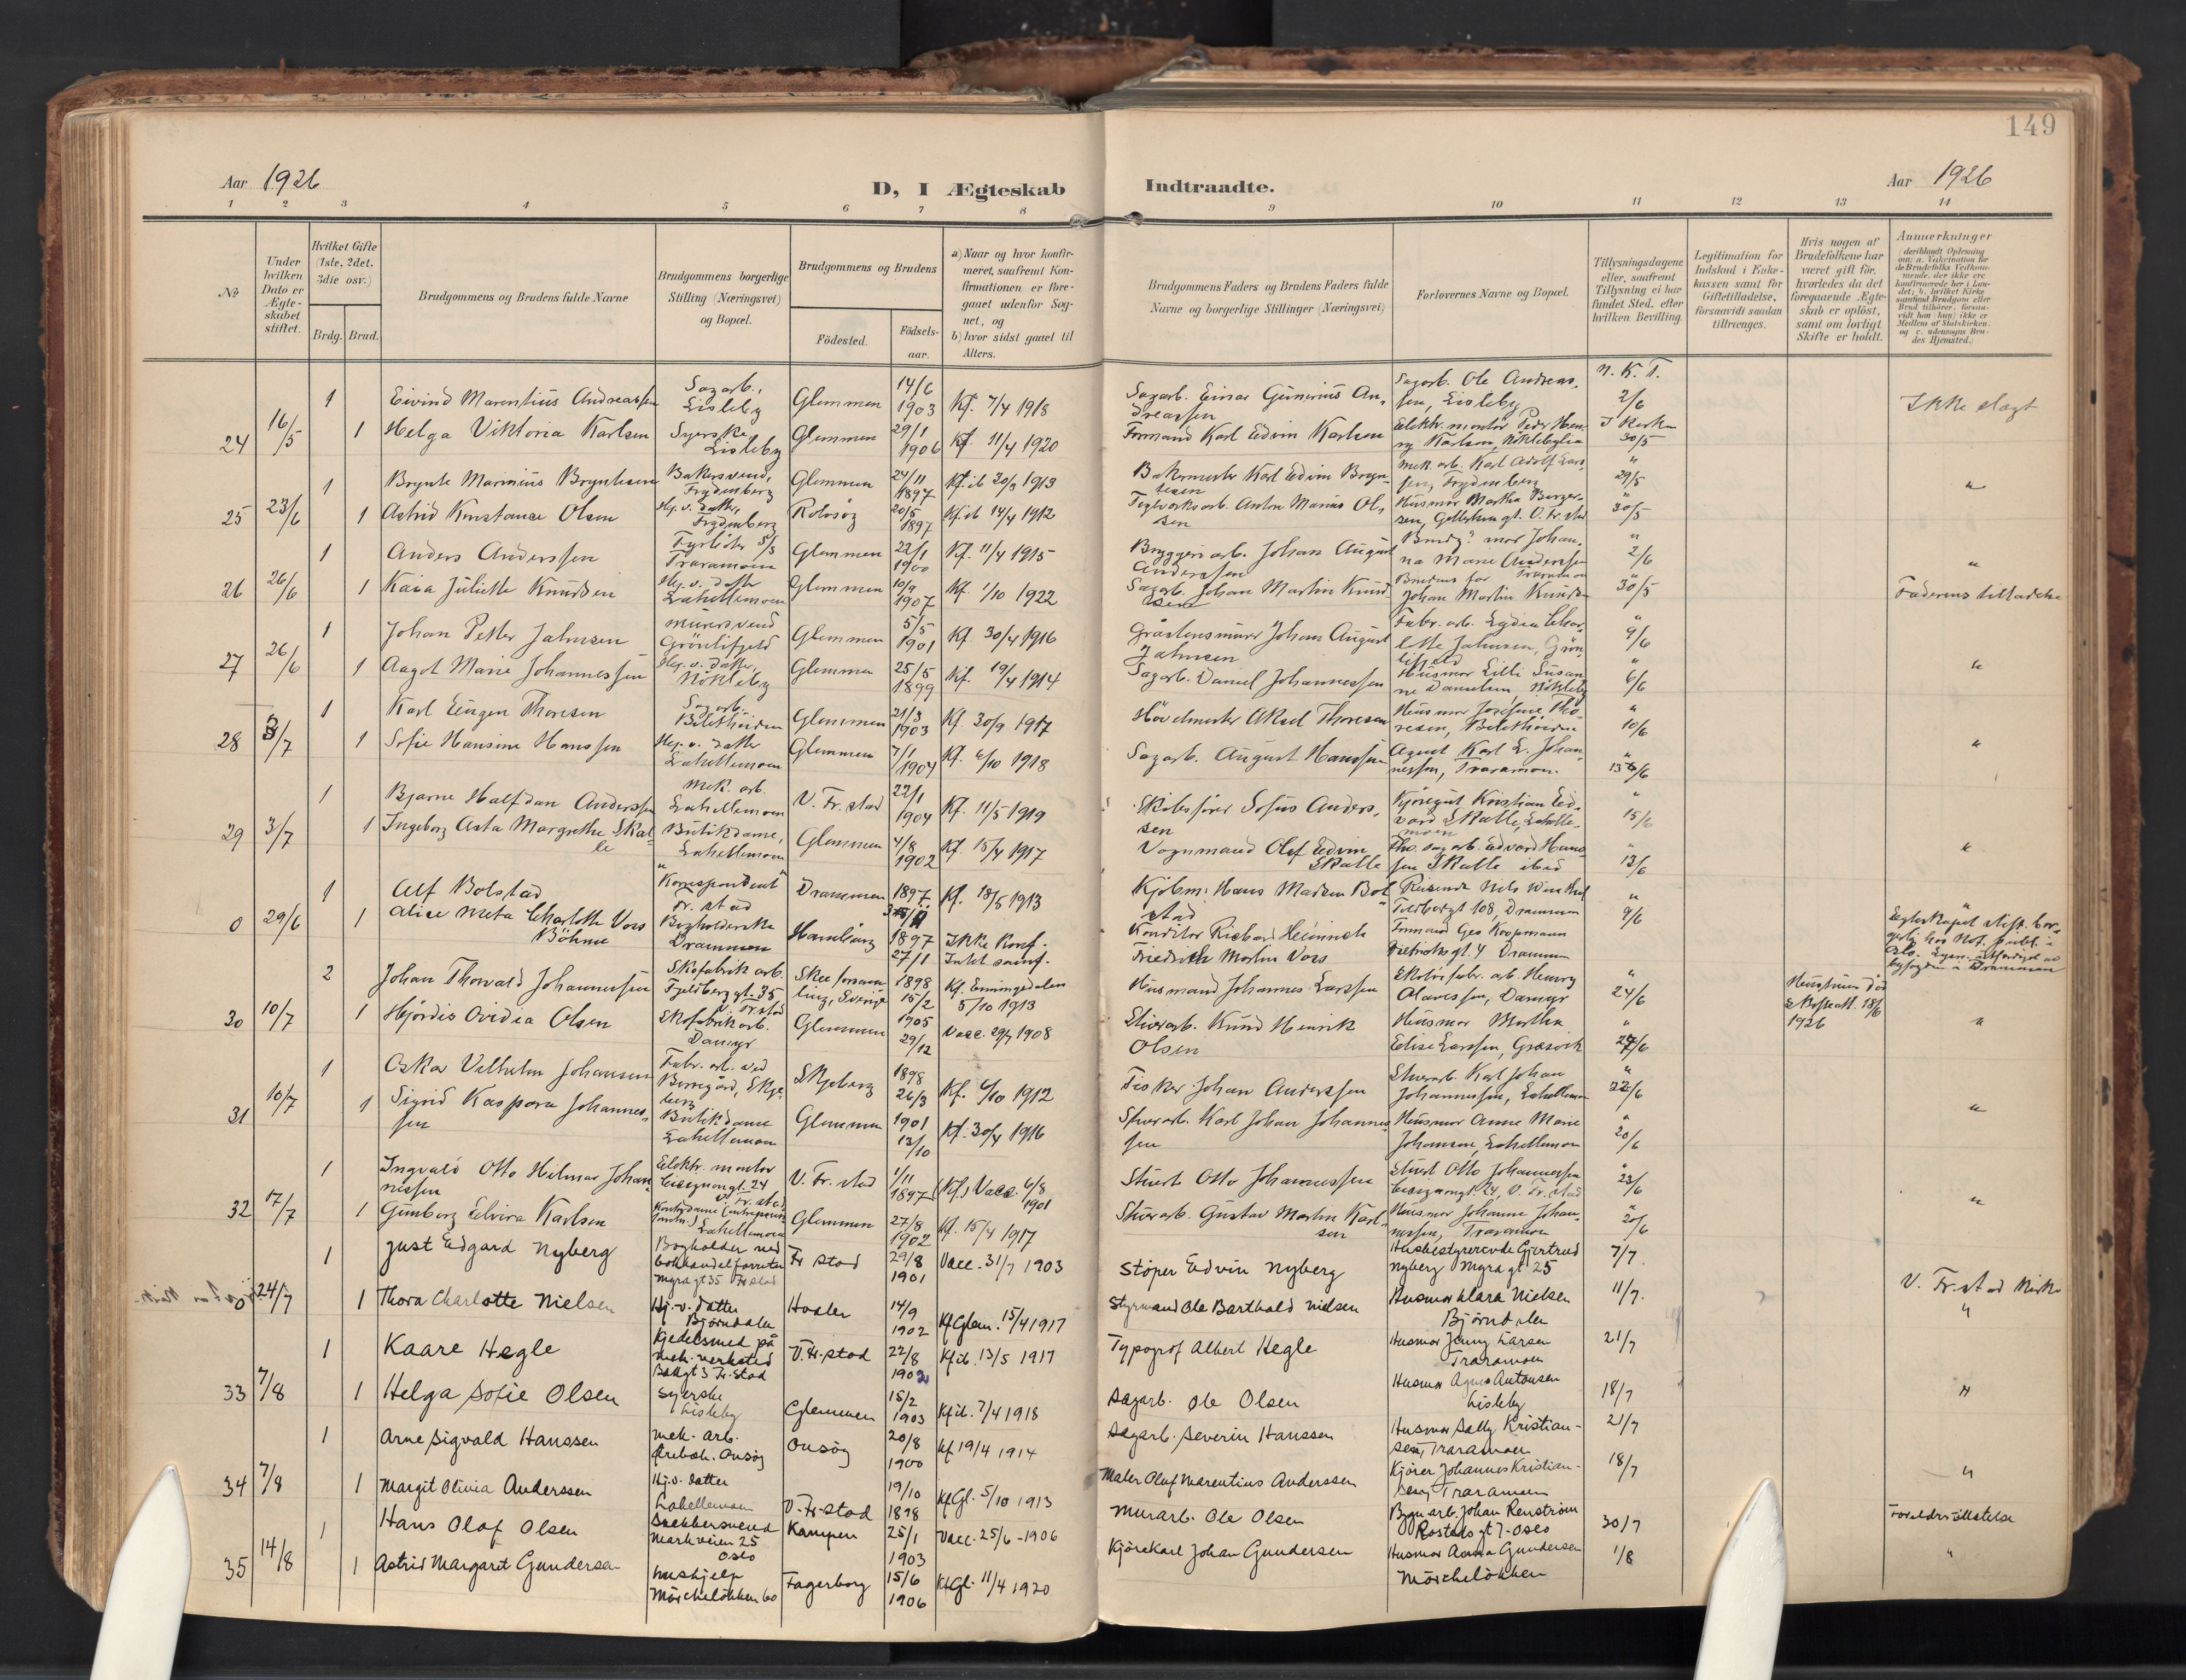 149
Aar 1926
D, I Ægteskab
Indtraadte.
Aar 1926
1 2 3 4 5 6 7 8 9 10 11 12 13 14
No
Under hvilken Dato er Ægteskabet stiftet.
Hvilket Gifte (1ste, 2det, 3die osv.)
Brdg. Brud.
Brudgommens og Brudens fulde Navne
Brudgommens borgerlige Stilling (Næringsvei) og Bopæl.
Brudgommens og Brudens
Födested. Födselsaar.
a) Naar og hvor konfirmeret, saafremt Konfirmationen er foregaaet udenfor Sognet, og
b) hvor sidst gaaet til Alters.
Brudgommens Faders og Brudens Faders fulde Navne og borgerlige Stillinger (Næringsvei)
Forlovernes Navne og Bopæl.
Tillysningsdagene eller, saafremt Tillysning ei har fundet Sted, efter hvilken Bevilling.
Legitimation for Indskud i Enkekassen samt for Giftetilladelse, forsaavidt saadan tiltrænges.
Hvis nogen af Brudefolkene har været gift før, hvorledes da det foregaaende Ægteskab er oplöst, samt om lovligt Skifte er holdt.
Anmerkninger
24 16/5
1 Eivind Marentius Andreassen Sagarb., Lisleby Glemmen 14/6 1903 Kf. 7/4 1918 Sagarb. Einar Gunerius Andreassen Sagarb. Ole Andreassen, Lisleby N. K. T. 2/6 Ikke slægt
1 Helga Viktoria Karlsen Syerske Lisleby Glemmen 29/1 1906 Kf. 11/4 1920 Formand Karl Edvin Karlsen Elektr. montør Peder Henry Karlsen, Nökleby I Kirken 30/5
25 23/6
1 Brynte Marinius Bryntesen Bakersvend, Frydenberg Glemmen 24/11 1897 Kf. ib 20/3 1913 Bakermester Karl Edvin Bryntesen Mek. arb. Karl Adolf Larssen, Frydenberg " 29/5 "
1 Astrid Konstanse Olsen Hj. v. datter, Frydenberg Rolvsöy 20/5 1897 Kf. ib 14/4 1912 Teglverksarb. Anton Marius Olsen Husmor Martha Borgersen, V. Fr.stad " 30/5
26 26/6
1 Anders Anderssen Traramoen Glemmen 22/1 1900 Kf. 11/4 1915 Bryggeriarb. Johan August Anderssen Brudg. mor Johanna Marie Anderssen Traramoen " 2/6 "
1 Kaia Juliette Knudsen Hj. v. datter Lahellemoen Glemmen 10/9 1907 Kf. 1/10 1922 Sagarb. Johan Martin Knudsen Brudens far Johan Martin Knudsen " 30/5 Faderens tilladelse
27 26/6
1 Johan Petter Jahnsen Murersvend Grönlifjeld Glemmen 5/5 1901 Kf. 30/4 1916 Gråstensmurer Johan August Jahnsen Fabr. arb. Lydia Charlotte Jahnsen, Grönlifjeld " 9/6
1 Aagot Marie Johannessen Hj. v. datter, Nökleby Glemmen 25/5 1899 Kf. 19/4 1914 Sagarb. Daniel Johannessen Husmor Lilli Susanne Danielsen, Nökleby " 6/6 "
28 3/7
1 Karl Eugen Thoresen Sagarb. Glemmen 21/3 1903 Kf. 30/9 1917 Hövelmester Aksel Thoresen Husmor Josefine Thoresen, " 10/6
1 Sofie Hansine Hanssen Hj. v. datter Lahellemoen Glemmen 7/1 1904 Kf. 6/10 1918 Sagarb. August Hanssen Agent Karl E. Johannessen, Traramoen. " 13/6 "
29 3/7
1 Bjarne Halfdan Anderssen Mek. arb. Lahellemoen V. Fr. stad 22/1 1904 Kf. 11/5 1919 Skibsfører Sofus Anderssen Kjöregut Kristian Edvard Skalle, Lahellemoen " 15/6
1 Ingeborg Asta Margrethe Skalle Butikdame, Lahellemoen Glemmen 4/8 1902 Kf. 15/4 1917 Vognmand Olaf Edvin Skalle Fhv. sagarb. Edvard Hanssen Skalle ibid " 13/6 "
0 29/6
1 Alf Bolstad Korrespondent Fr. stad Drammen 1897 Kf. 18/5 1913 Kjöbm. Hans Madsen Bolstad Reisende Nils 108, Drammen " 9/6
1 Alice Meta Charlotte Voss Böhme Bogholderske Drammen Hamburg 1897 Ikke Konf. Konditor Richard Heinrich Friedrich Martin Voss Formand Geo Koopmann gt. 4 Drammen
30 10/7
2 Johan Thorvald Johannessen Skofabrik arb. Fjeldberggt 35 V. Fr. stad Skee forsamling, Sverige 27/1 1898 Kf. Enningedalen 5/10 1913 Husmand Johannes Larssen Skotöifabr. arb. Henry Olavessen, Damyr " 24/6 Hustrum död Skifteatt. 18/6 1926
1 Hjördis Ovidia Olsen Skofabrikarb. Damyr Glemmen 15/2 1905 Vacc. 29/9 1908 Stuerarb. Knud Henrik Olsen Husmor Martha Elise Larssen, Græsvik " 27/6 "
31 10/7
1 Oskar Vilhelm Johansen Fabr. arb. ved Borregård, Skjeberg Skjeberg 29/12 1898 Kf. 6/10 1912 Fisker Johan Anderssen Stuerarb. Karl Johan Johannessen, Lahellemoen " 22/6
1 Sigrid Kaspara Johannessen Butikdame Lahellemoen Glemmen 26/3 1901 Kf. 30/4 1916 Stuerarb. Karl Johan Johannessen Husmor Anne Marie Johansen, Lahellemoen " 20/6 "
32 17/7
1 Ingvald Otto Hilmar Johannessen Elektr. montør 24 V. Fr. stad V. Fr. stad 1/11 1897 (Kf.) Vacc. 6/8 1901 Stuert Otto Johannessen Stuert Otto Johannessen 24, V. Fr. stad " 23/6
1 Gunborg Elvira Karlsen Kontordame Lahellemoen Glemmen 27/8 1902 Kf. 15/4 1917 Stuerarb. Gustav Martin Karlsen Husmor Johanne Johannessen, Traramoen " 20/6 "
0 24/7
1 Just Edgard Nyberg Bogholder ved bokhandelforretn. Myragt 35 Fr stad Fr stad 29/8 1901 Vacc. 31/7 1903 Støper Edvin Nyberg Husbestyrerende Gjertrud Nyberg Myragt 25 7/7. V. Fr. stad Kirke
1 Thora Charlotte Nielsen Hj. v. datter Björndalen Hvaler 14/9 1902 Kf Glem. 15/4 1917 Styrmand Ole Barthold Nielsen Husmor Klara Nielsen Björndalen 11/7. "
33 7/8
1 Kaare Hegle Kjedelsmed på mek. verksted Bakkgt 3 Fr. stad V. Fr. stad 22/8 1902 Kf ib. 13/5 1917 Typograf Albert Hegle Husmor Jenny Larsen Traramoen 21/7
1 Helga Sofie Olsen Syerske Lisleby Glemmen 15/2 1903 Kf ib. 7/4 1918 Sagarb. Ole Olsen Husmor Agnes Antonsen Lisleby 18/7 "
34 7/8
1 Arne Sigvald Hanssen Mek. arb. Onsöy Onsöy 20/8 1900 Kf 19/4 1914 Sagarb. Severin Hanssen Husmor Sally Kristiansen, Traramoen 21/7
1 Margit Olivia Anderssen Hj. v. datter Lahellemoen V. Fr. stad 19/10 1898 Kf Gl. 5/10 1913 Maler Oluf Marentius Anderssen Kjører Johannes Kristiansen, Traramoen 18/7 "
35 14/8
1 Hans Olaf Olsen Snekkersvend Markveien 25 Oslo Kampen 25/1 1903 Vacc. 25/6 - 1906 Murarb. Ole Olsen Bygn. arb. Johan Renström Rostedsgt 7. Oslo 30/7
1 Astrid Margaret Gundersen Hushjelp Mörchelökken 60 Fagerborg 15/6 1906 Kf Gl. 11/4 1920 Kjörekarl Johan Gundersen Husmor Anna Gundersen Mörchelökken 1/8 "